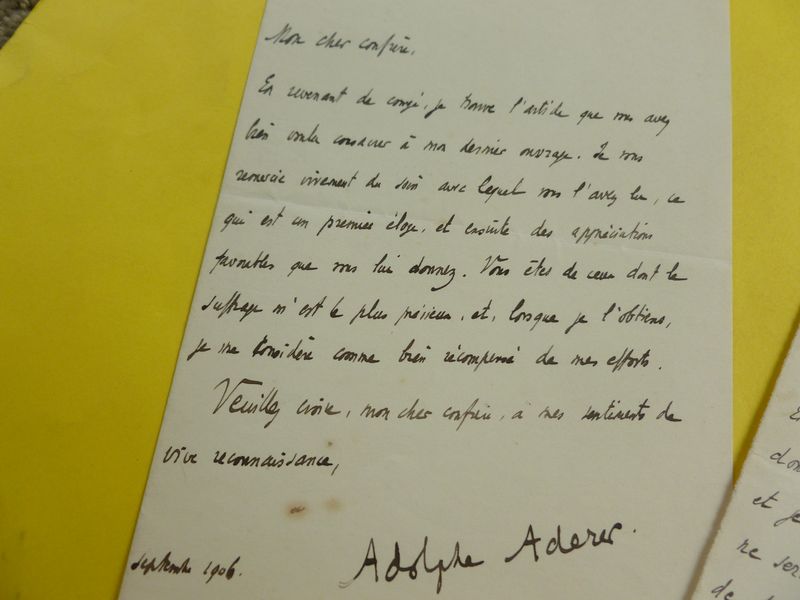 Mon cher confrère,
En revenant de congé, je trouve l'article que vous avez
bien voulu consacrer à mon dernier ouvrage. Je vous
remercie vivement du soin avec lequel vous l'avez lu, ce
qui est un premier éloge, et ensuite des appréciations
favorables que vous lui donnez. Vous êtes de ceux dont le
suffrage m'est le plus précieux, et, lorsque je l'obtiens,
je me considère comme bien récompensé de mes efforts.
Veuillez croire, mon cher confrère, à mes sentiments de
vive reconnaissance,
Adolphe Aderer.
Septembre 1906.
don
et je
ne ser
de